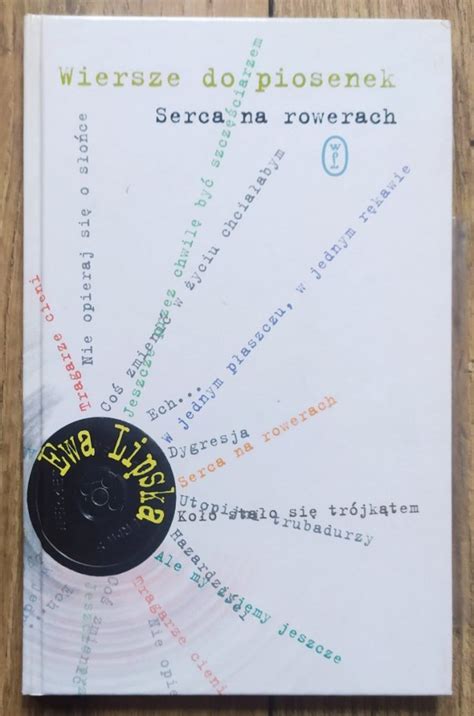 Wiersze do piosenek
Serca na rowerach
wl
Tragarze cieni
Nie opieraj się o słońce
Coś zmienić w życiu chciałabym
Jeszcze przez chwilę być szczęściarzem
Ech...
w jednym płaszczu, w jednym rękawie
Dygresja
Serca na rowerach
Ewa Lipska
Koło stało się trójkątem
trubadurzy
Hazardziści
Ale my żyjemy jeszcze
Tragarze cieni
Nie opie
Coś zmien
Jeszcze
Ech